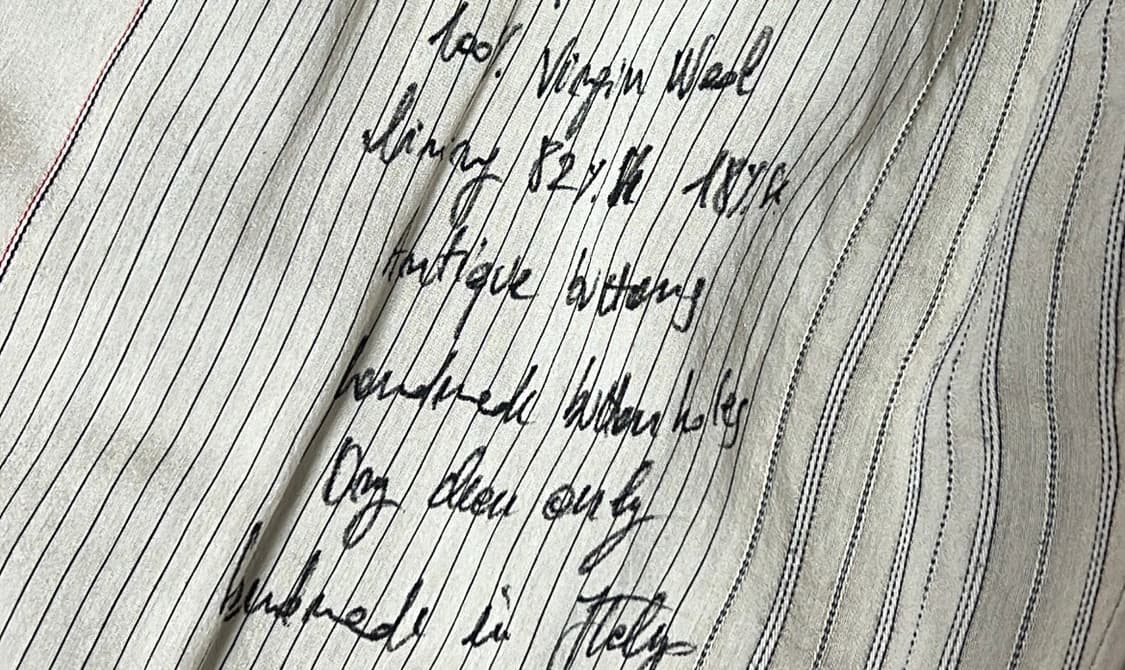 100% Virgin Wool
lining 82% 18%
antique buttons
handmade button holes
Dry clean only
handmade in Italy